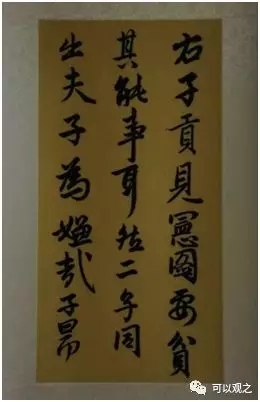 右子貢見憲圖安貧
其能事耳然二子同
出夫子為嫌哉子昂
可以观之